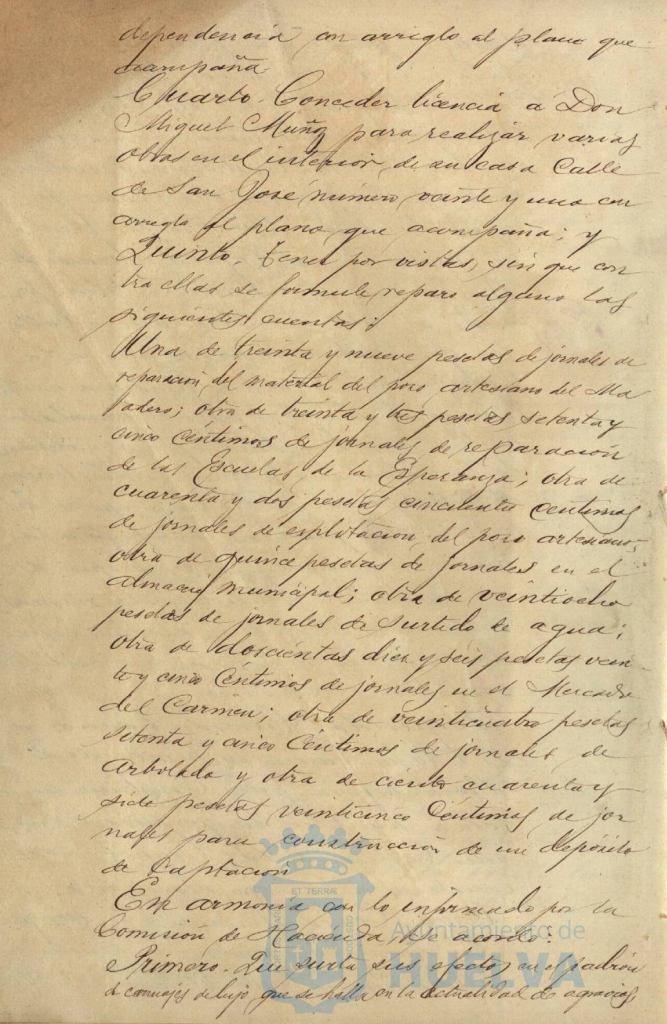 dependencia con arreglo al plano que
acompaña
Cuarto. Conceder licencia á Don
Miguel Muñoz para realizar varias
obras en el interior de su casa Calle
de San José número veinte y uno con
arreglo al plano que acompaña; y
Quinto. Tener por vistas, sin que con
tra ellas se formule reparo alguno las
siguientes cuentas:
Una de treinta y nueve pesetas de jornales de
reparación del material del pozo artesiano del Ma
tadero; otra de treinta y tres pesetas setenta y
cinco céntimos de jornales de reparación
de las Escuelas de la Esperanza; otra de
cuarenta y dos pesetas cincuenta centimos
de jornales de explotacion del pozo artesiano;
otra de quince pesetas de jornales en el
almacen municipal; otra de veintiocho
pesetas de jornales de surtido de agua;
otra de doscientas diez y seis pesetas vein
te y cinco Céntimos de jornales en el Mercado
del Carmen; otra de veinticuatro pesetas
setenta y cinco Céntimos de jornales de
Arbolado y otra de ciento cuarenta y
siete pesetas veinticinco Céntimos de jor
nales para construcción de un depósito
de captacion
En armonía con lo informado por la
Comisión de Hacienda, se acordó:
Primero. Que surta sus efectos en el padrón
de carruajes de lujo, que se halla en la actualidad de agravios,
Ayuntamiento de
HUELVA